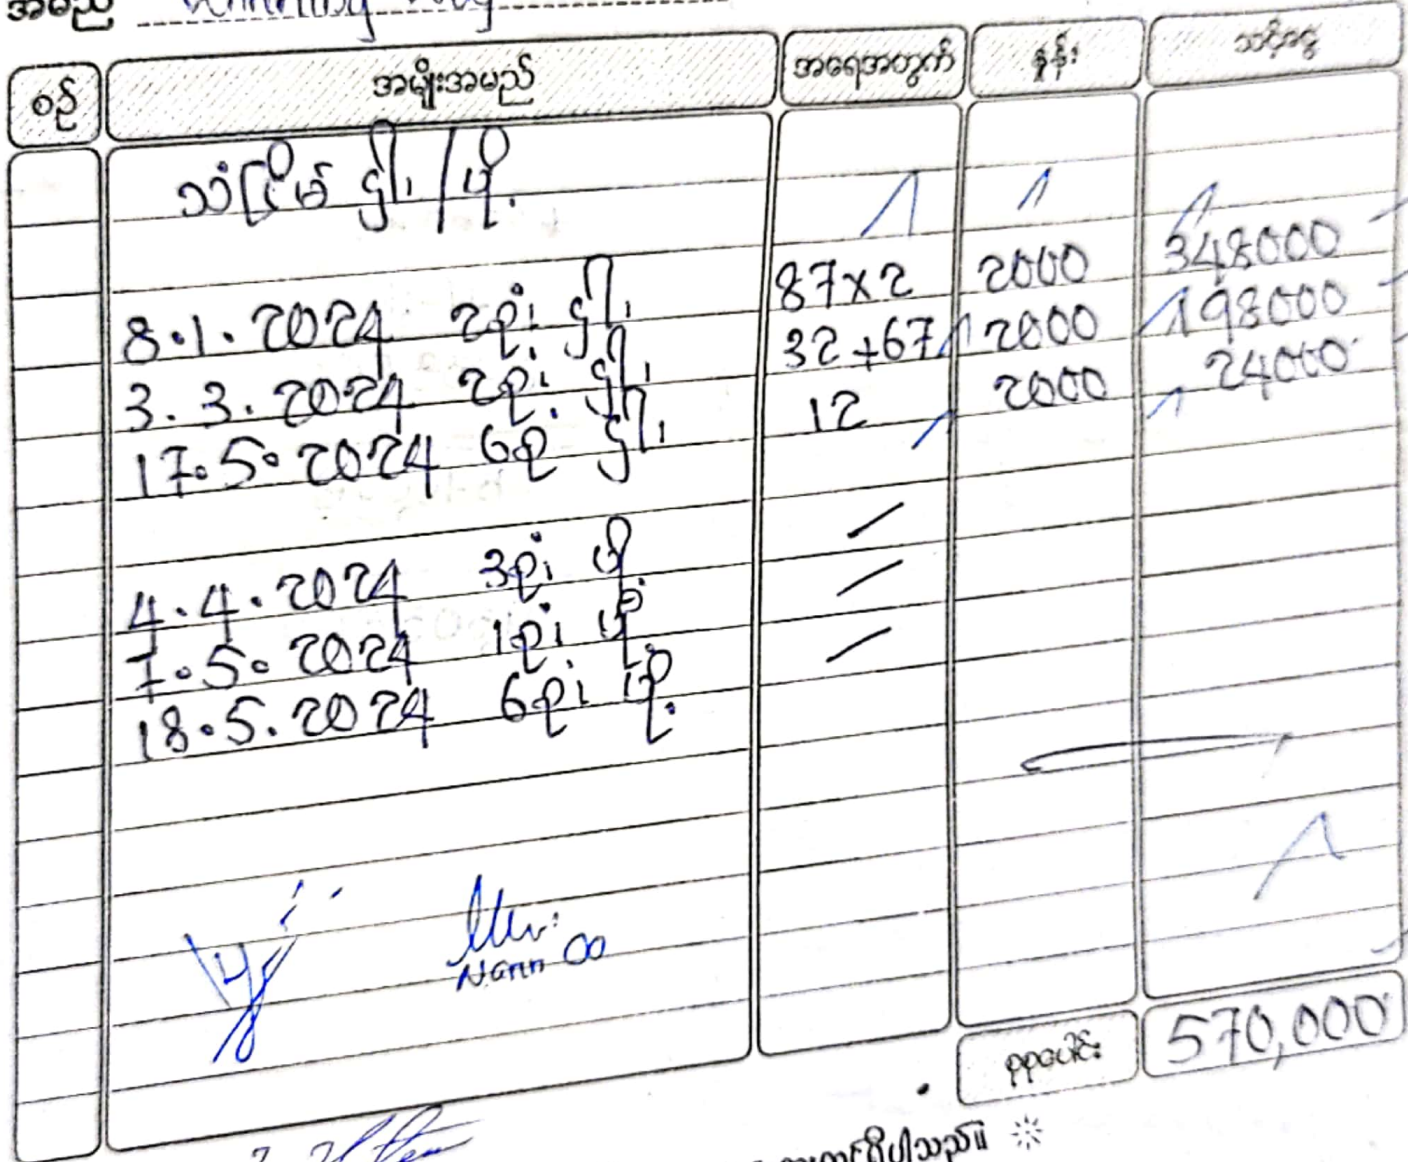 အမည်
စဉ် အမျိုးအမည် အရေအတွက် နှုန်း သင့်ငွေ
သံငြိမ်း ငှါး / ပို့
8.1.2024 2လုံး ငှါး 87x2 2000 348000
3.3.2024 2လုံး ငှါး 32+67 2000 198000
17.5.2024 6လုံး ငှါး 12 2000 24000
4.4.2024 3လုံး ပို့
7.5.2024 1လုံး ပို့
18.5.2024 6လုံး ပို့
Nann Oo
စုစုပေါင်း 570,000